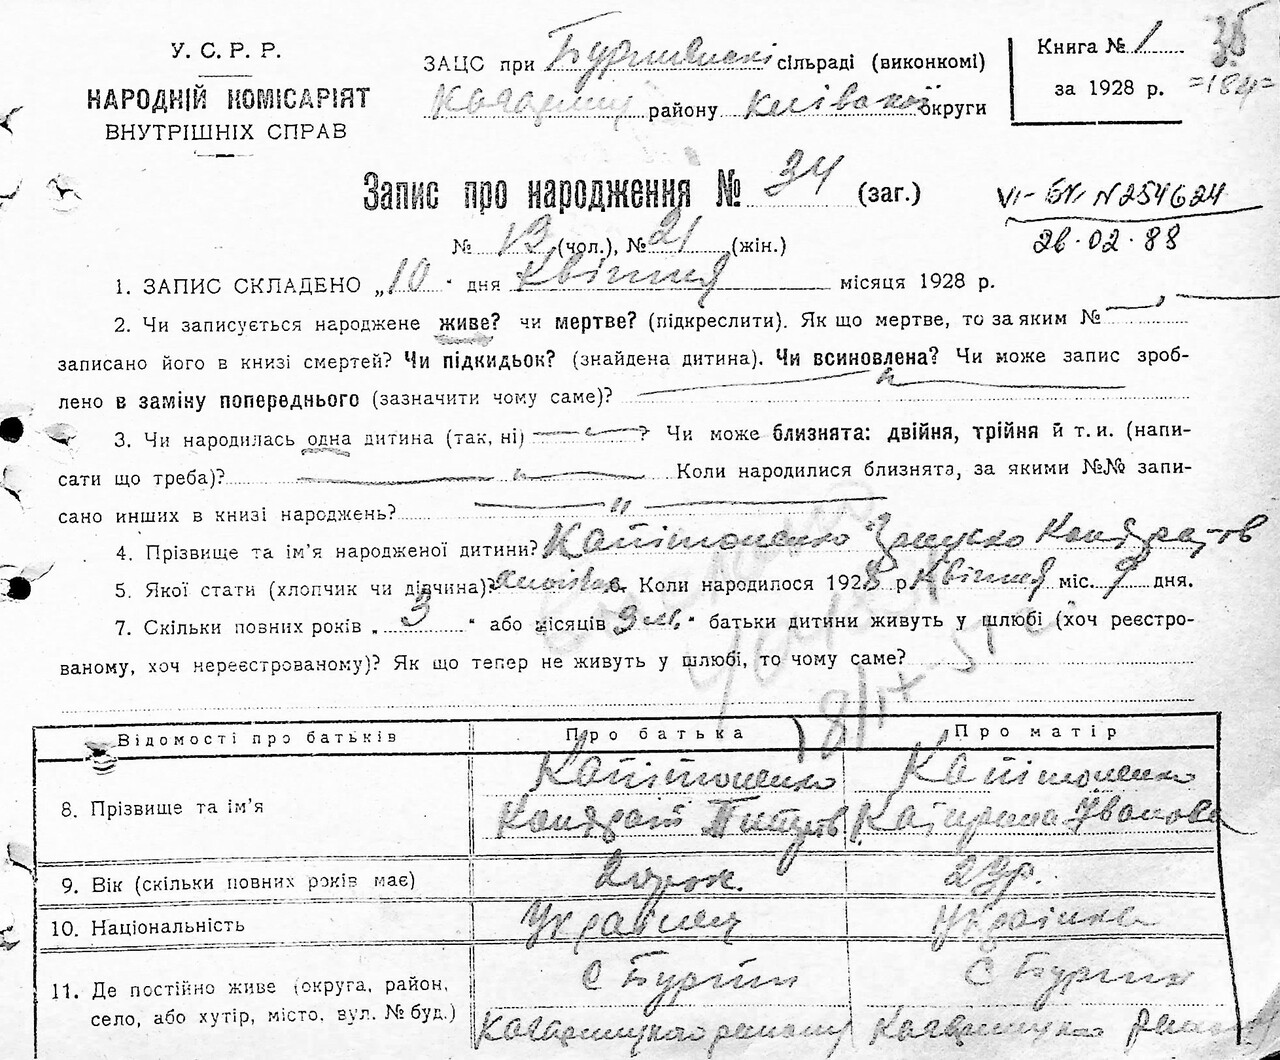 У. С. Р. Р.
НАРОДНІЙ КОМІСАРІЯТ
ВНУТРІШНІХ СПРАВ
ЗАЦС при сільраді (виконкомі)
району округи
Книга № 1
за 1928 р.
=184=
Запис про народження № 34 (заг.)
№ 13 (чол.), № 21 (жін.)
N 254624
26·02·88
1. ЗАПИС СКЛАДЕНО „10“ дня квітня місяця 1928 р.
2. Чи записується народжене живе? чи мертве? (підкреслити). Як що мертве, то за яким №
записано його в книзі смертей? Чи підкидьок? (знайдена дитина). Чи всиновлена? Чи може запис зроб-
лено в заміну попереднього (зазначити чому саме)?
3. Чи народилась одна дитина (так, ні) ? Чи може близнята: двійня, трійня й т. и. (напи-
сати що треба)? Коли народилися близнята, за якими №№ запи-
сано инших в книзі народжень? "
4. Прізвище та ім'я народженої дитини? Капітоненко
5. Якої стати (хлопчик чи дівчина)? 6. Коли народилося 1928 р. квітня міс. 9 дня.
7. Скільки повних років „ 3 “ або місяців 9 м. “ батьки дитини живуть у шлюбі (хоч реєстро-
ваному, хоч нереєстрованому)? Як що тепер не живуть у шлюбі, то чому саме?
Відомості про батьків Про батька Про матір
Капітоненко Капітоненко
8. Прізвище та ім'я Кондрат Катерина Іванова
9. Вік (скільки повних років має)
10. Національність Українец Українка
11. Де постійно живе (округа, район, с Бурти с Бурти
село, або хутір, місто, вул. № буд.) Кагарлицкого району Кагарлицкого